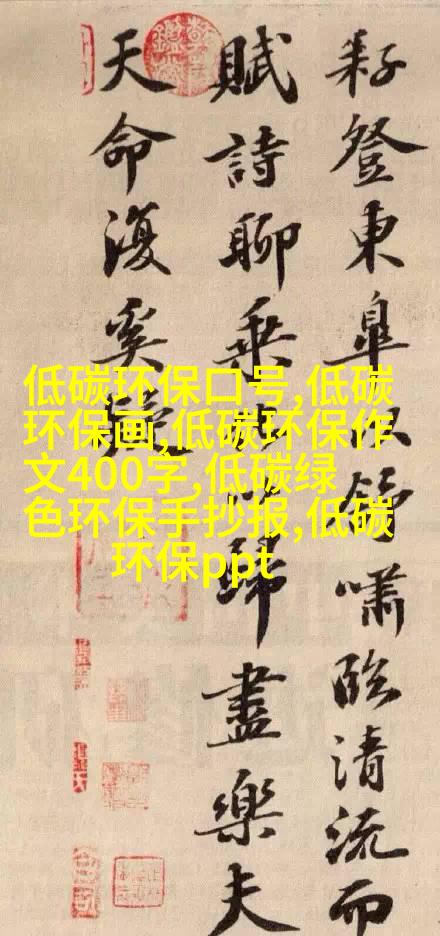 耔登東皐以舒嘯臨清流而
賦詩聊乘化以歸盡樂夫
天命復奚疑
低碳环保口号,低碳
环保画,低碳环保作
文400字,低碳绿
色环保手抄报,低碳
环保ppt